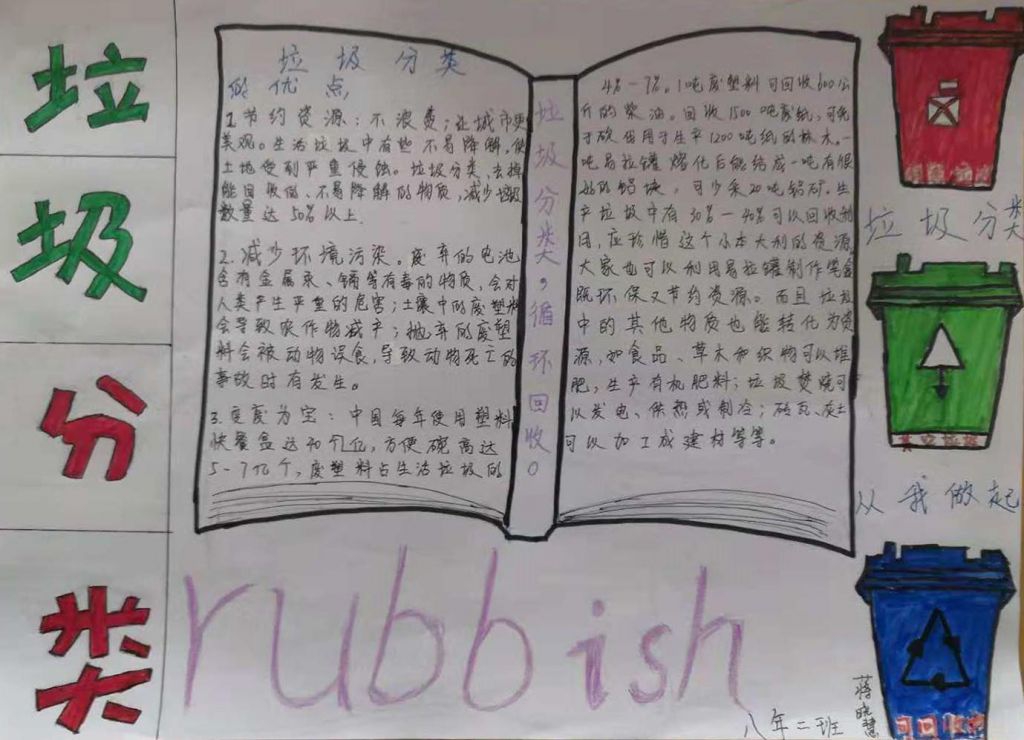 垃
圾
分
类
垃圾分类
的优点
1.节约资源：不浪费；让城市更
美观。生活垃圾中有些不易降解，使
土地受到严重侵蚀。垃圾分类，去掉
能回收的、不易降解的物质，减少垃圾
数量达50%以上.
2.减少环境污染。废弃的电池
含有金属汞、镉等有毒的物质，会对
人类产生严重的危害；土壤中的废塑料
会导致农作物减产；抛弃的废塑
料会被动物误食，导致动物死亡的
事故时有发生。
3.变废为宝：中国每年使用塑料
快餐盒达40个亿，方便碗高达
5-7亿个，废塑料占生活垃圾的
垃圾分类，循环回收。
4%—7%。1吨废塑料可回收600公
斤的柴油。回收1500吨废纸，可免
于砍伐用于生产1200吨纸的林木。一
吨易拉罐熔化后能结成一吨有很
的铝块，可少采20吨铝矿。生
产垃圾中有30%—40%可以回收利
用，应珍惜这个小本大利的资源。
大家也可以利用易拉罐制作笔盒
既环保又节约资源。而且垃圾
中的其他物质也能转化为资
源，如食品、草木和织物可以堆
肥，生产有机肥料；垃圾焚烧可
以发电、供热或制冷；砖瓦、灰土
可以加工成建材等等。
垃圾分类
从我做起
可回收
rubbish
八年二班
蒋晓慧